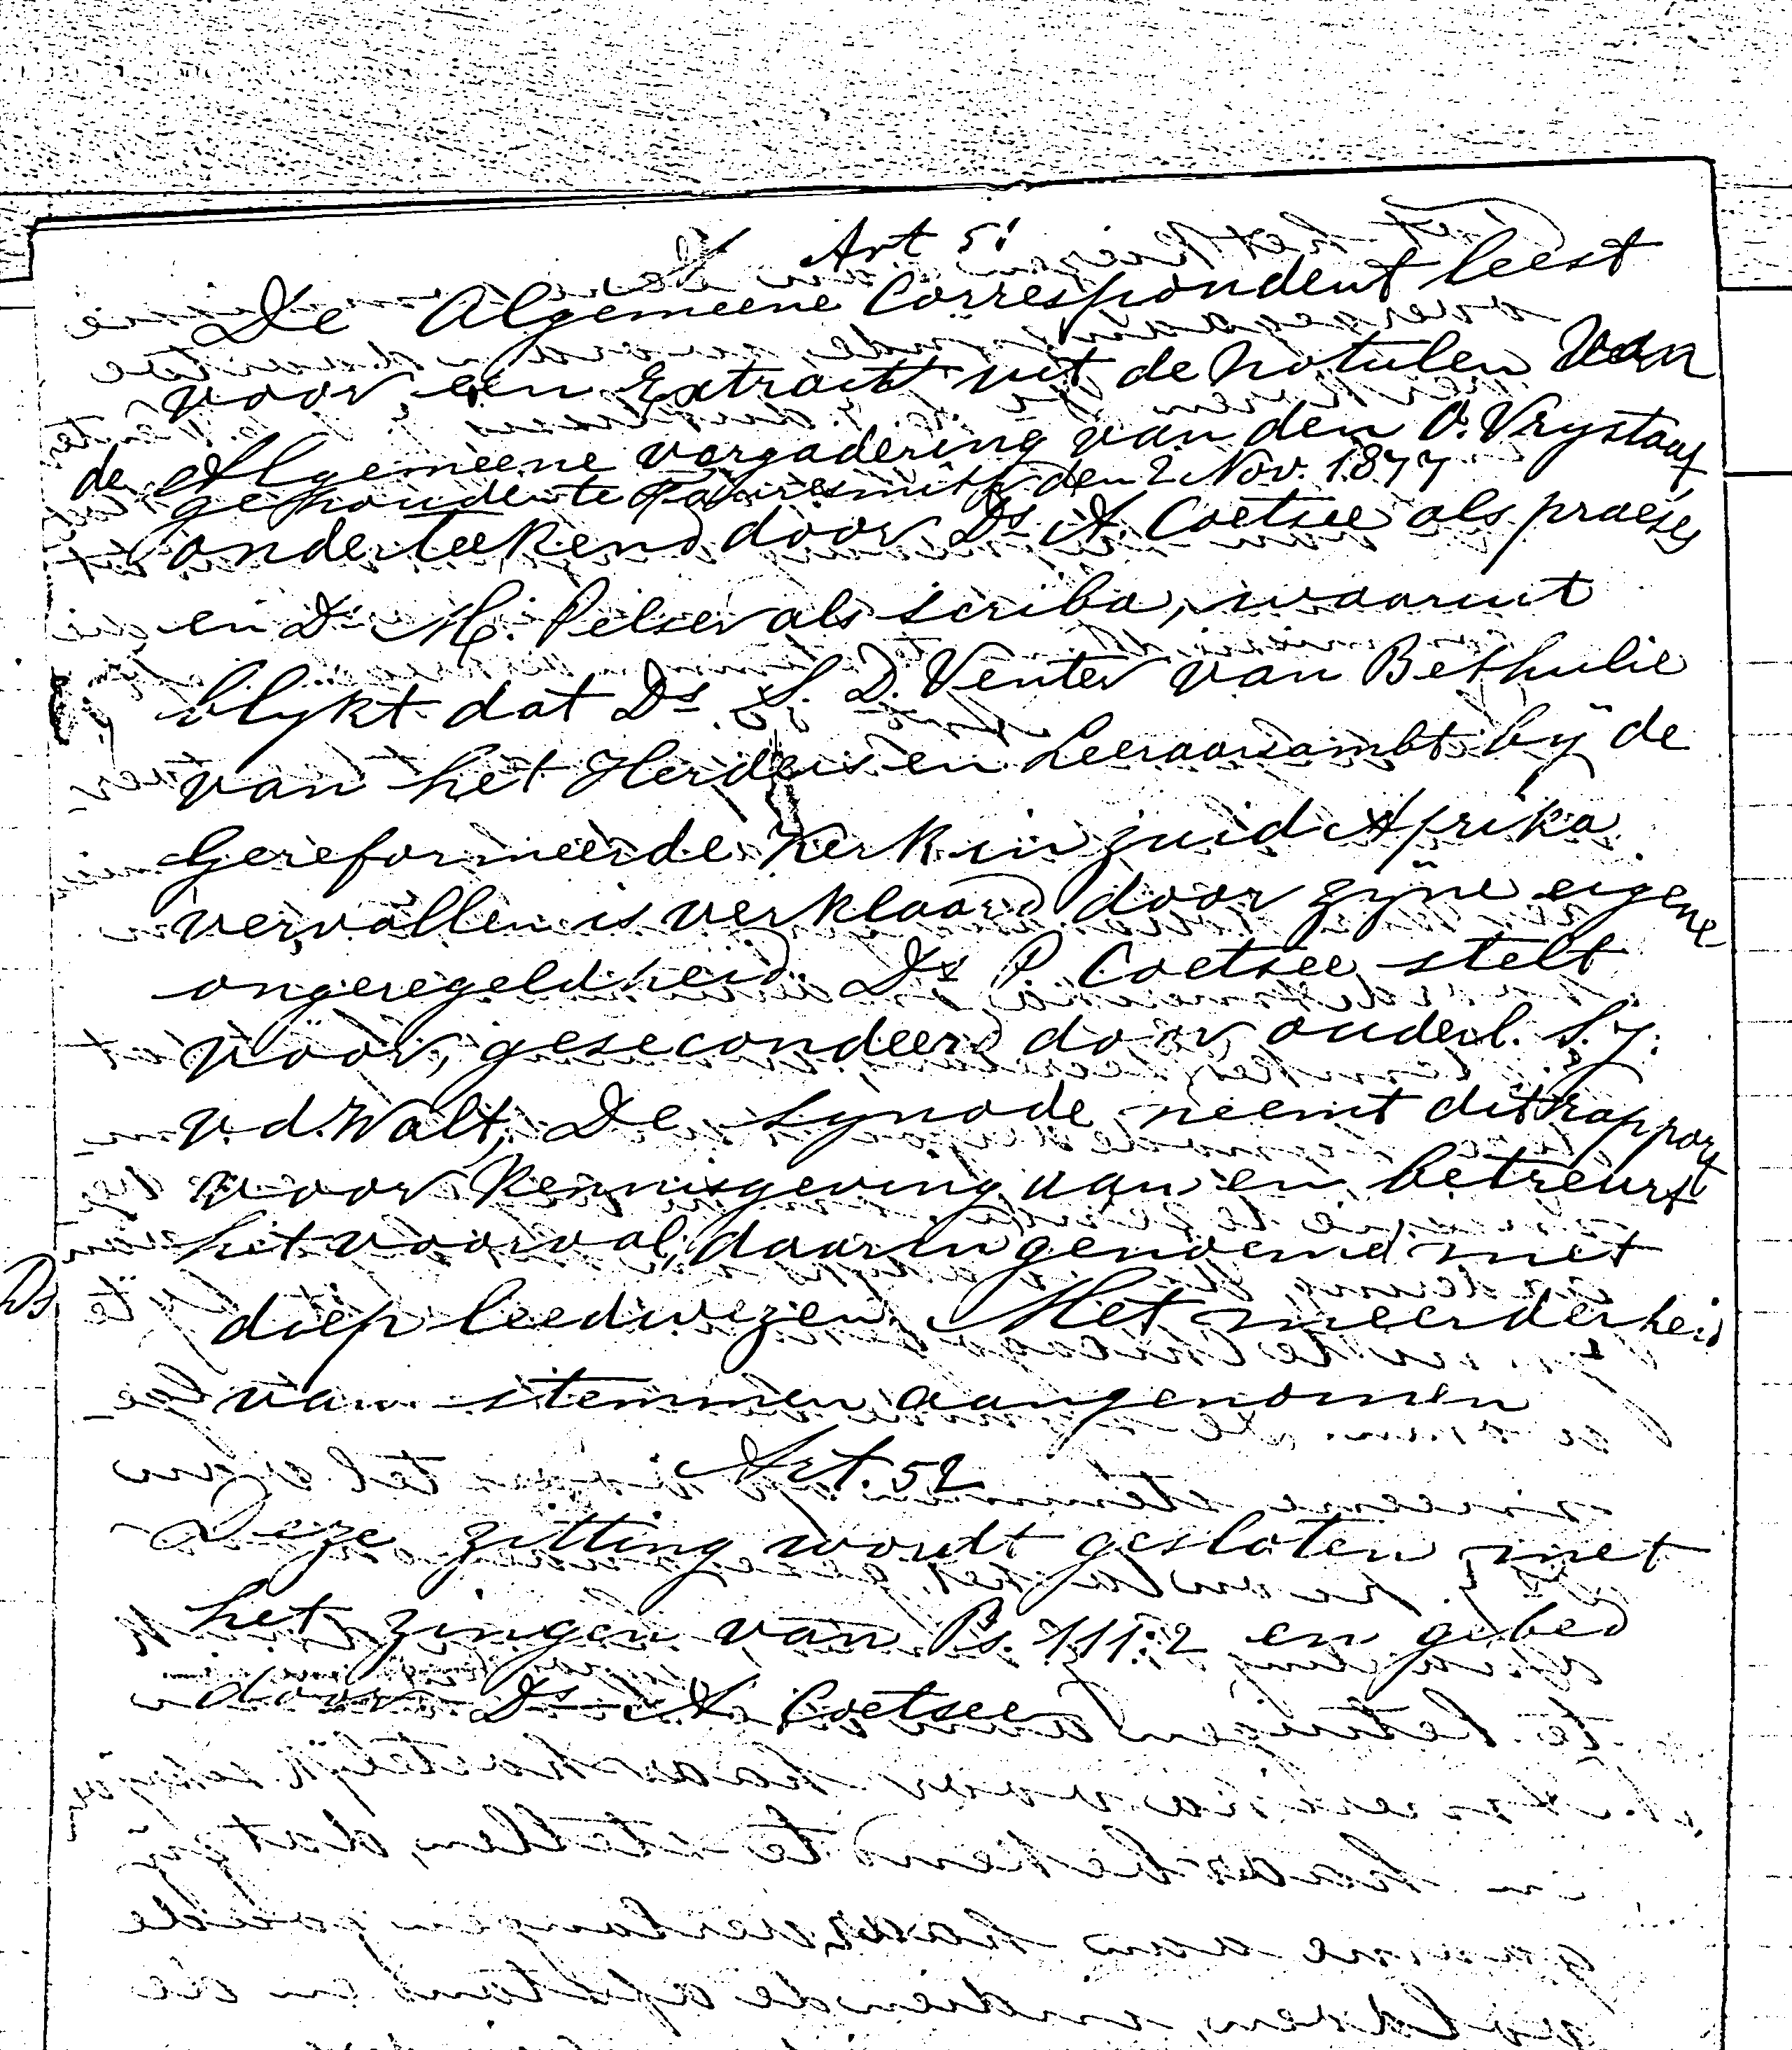 Art 51
De Algemeene Correspondent leest
voor een Extract uit de notulen van
de Algemeene vergadering van den O. Vrystaat
gehouden te Fauresmith den 2 Nov. 1877
onderteekend door Ds A. Coetsee als praeses
en Ds M. Pelser als scriba, waaruit
blykt dat Ds. S. D. Venter van Bethulie
van het Herders en Leeraarsambt by de
Gereformeerde Kerk in Zuid Afrika
vervallen is verklaard door zyne eigene
ongeregeldheid. Ds P. Coetsee stelt
voor, gesecondeerd door ouderl. S. J.
v d. Walt, De synode neemt dit rapport
voor kennisgeving aan en betreurt
het voorval, daarin genoemd met
diep leedwezen. Met meerderheid
van stemmen aangenomen
Art. 52
Deze zitting wordt gesloten met
het zingen van Ps. 111:2 en gebed
door Ds A Coetsee